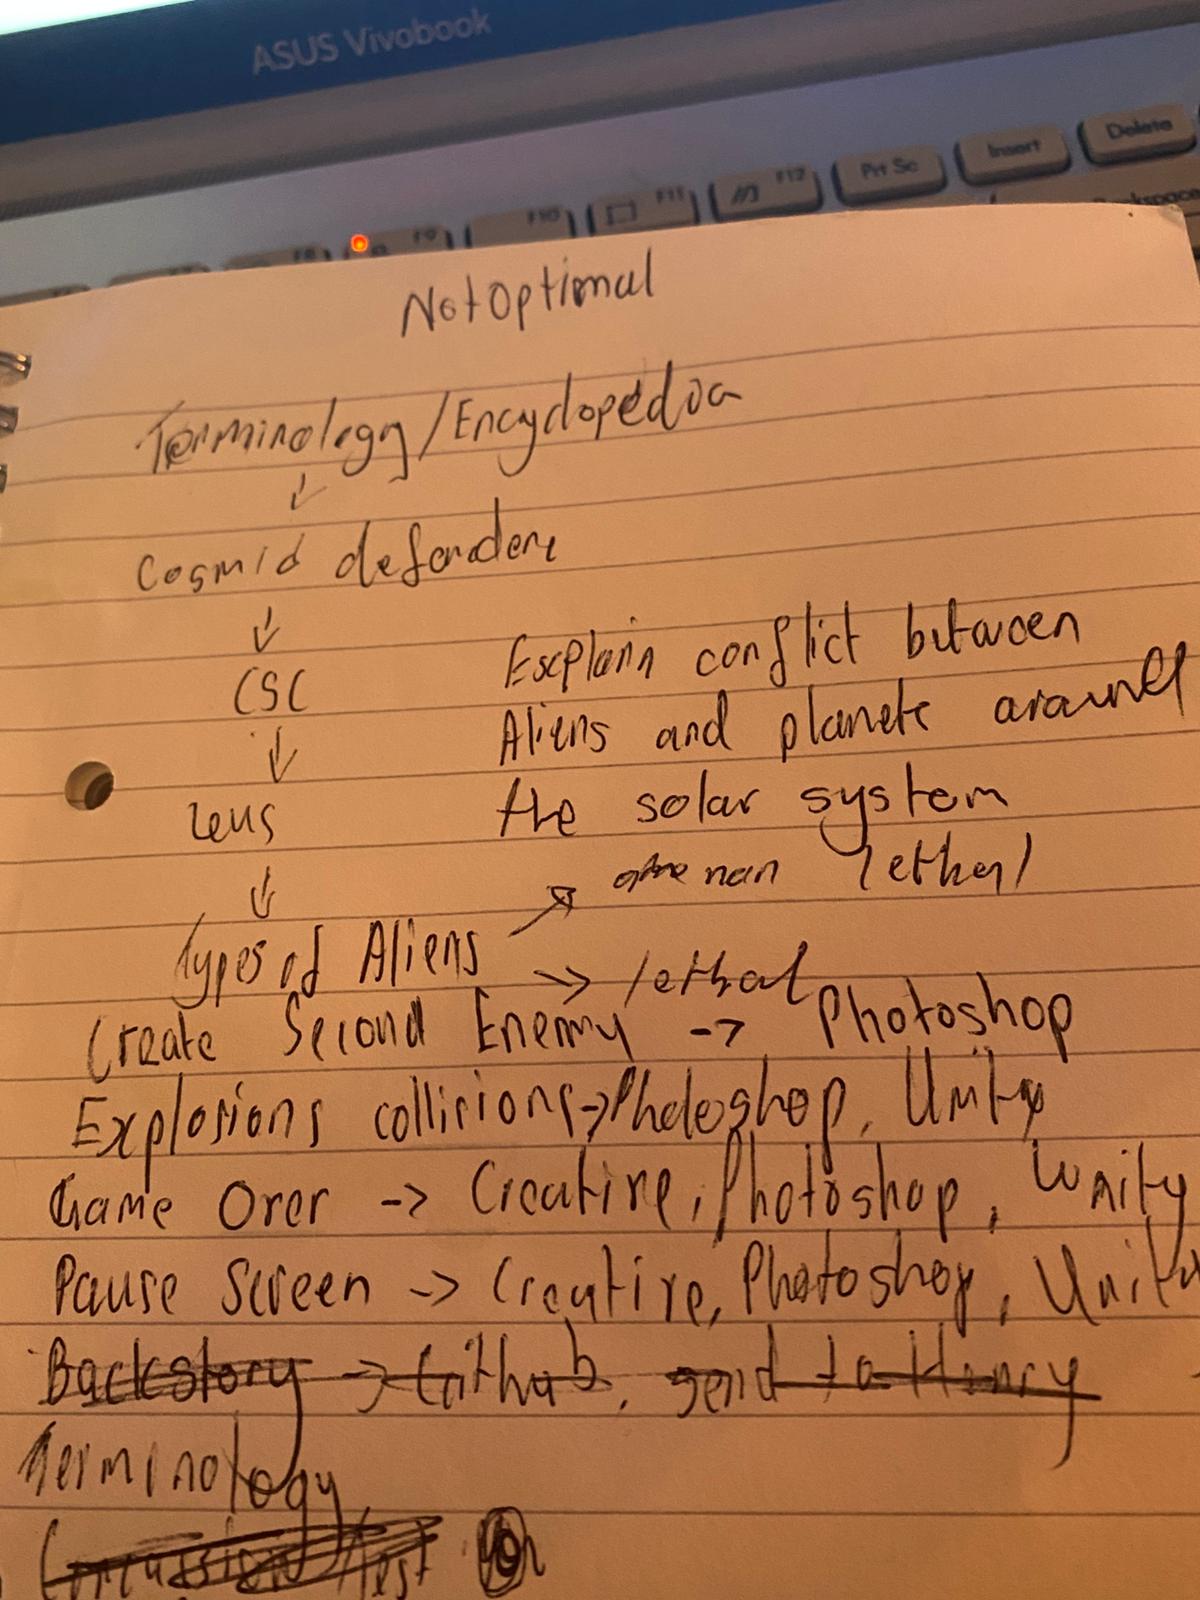 ASUS Vivobook
Delete
Insert
Prt Sc
F12
F11
F10
F9
F8
Backspace
NotOptimal
Terminology/Encyclopedia
↓
Cosmid defenders
↓
CSC
↓
Zeus
↓
Types of Aliens
Explain conflict between
Aliens and planets around
the solar system
↗ non lethal
→ lethal
Create Second Enemy -> Photoshop
Explosions collisions -> Photoshop, Unity
Game Over -> Creative, Photoshop, Unity
Pause Screen -> Creative, Photoshop, Unity
Backstory -> Github, send to Henry
Terminology